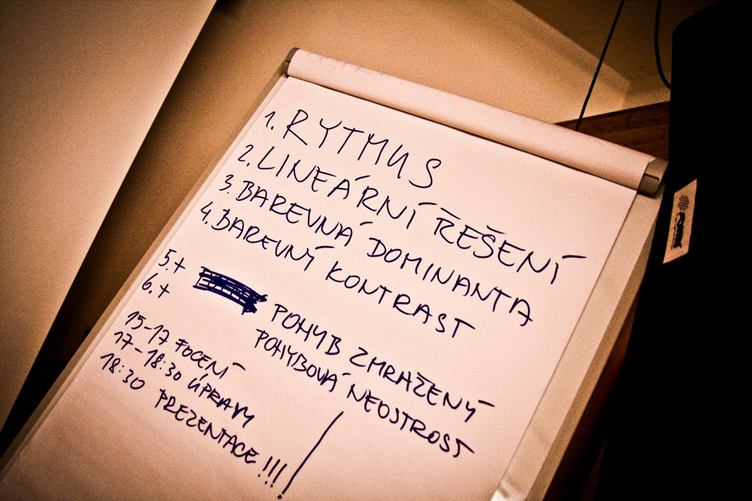 1. RYTMUS
2. LINEÁRNÍ ŘEŠENÍ
3. BAREVNÁ DOMINANTA
4. BAREVNÝ KONTRAST
5.+ POHYB ZMRAŽENÝ
6.+ POHYBOVÁ NEOSTROST
15-17 FOCENÍ
17-18:30 ÚPRAVY
18:30 PREZENTACE !!!